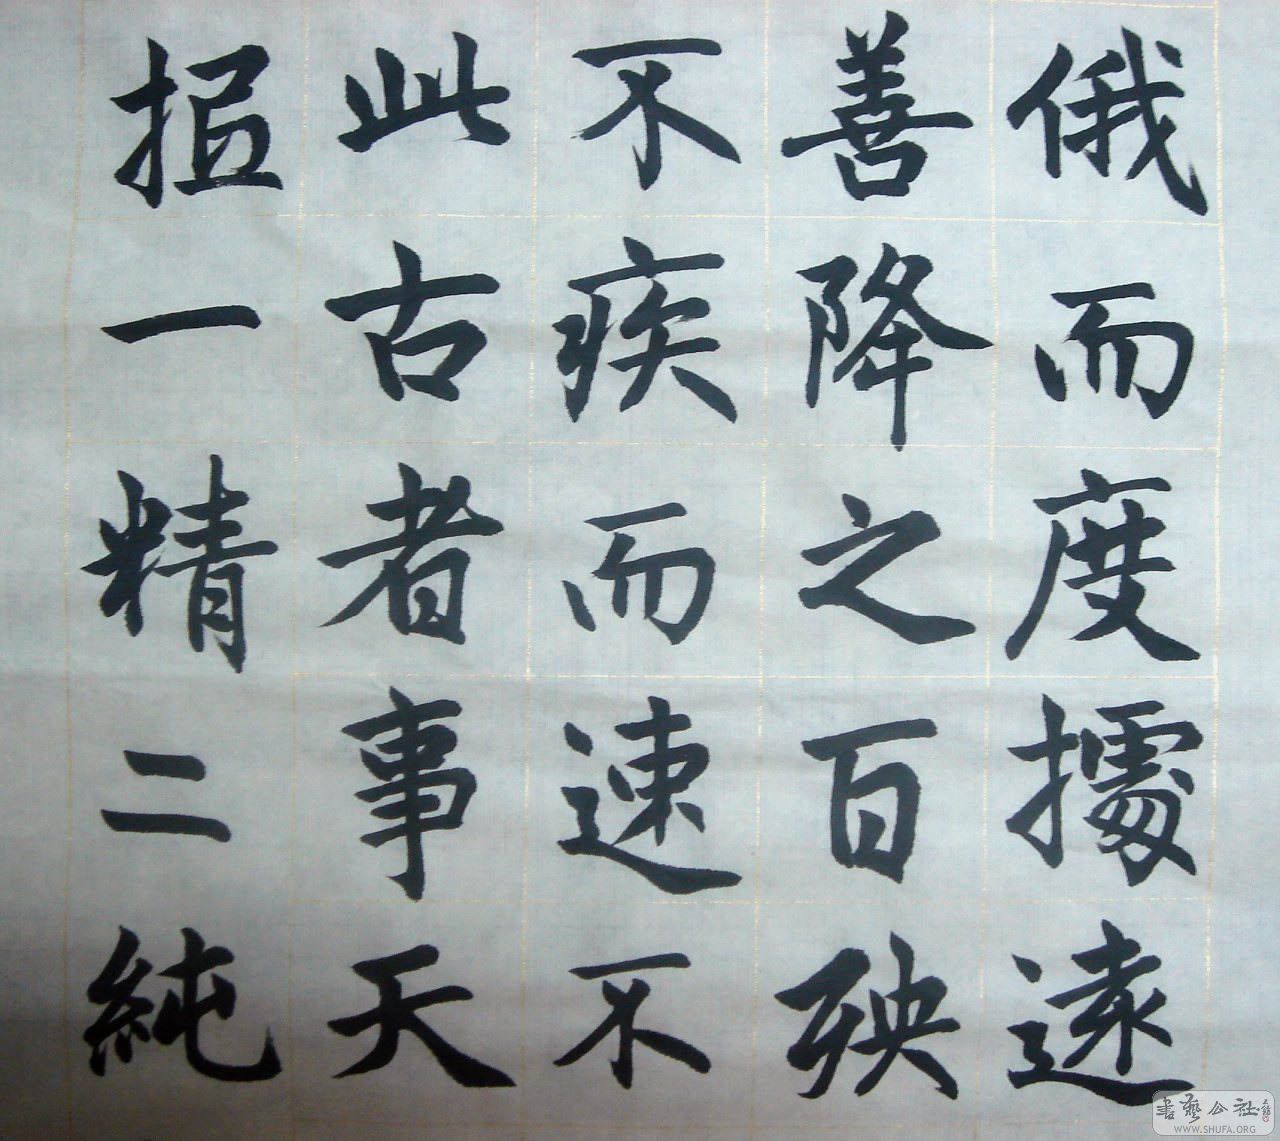 俄而度據遠
善降之百殃
不疾而速不
此古者事天
一精二純
書藝公社
WWW.SHUFA.ORG